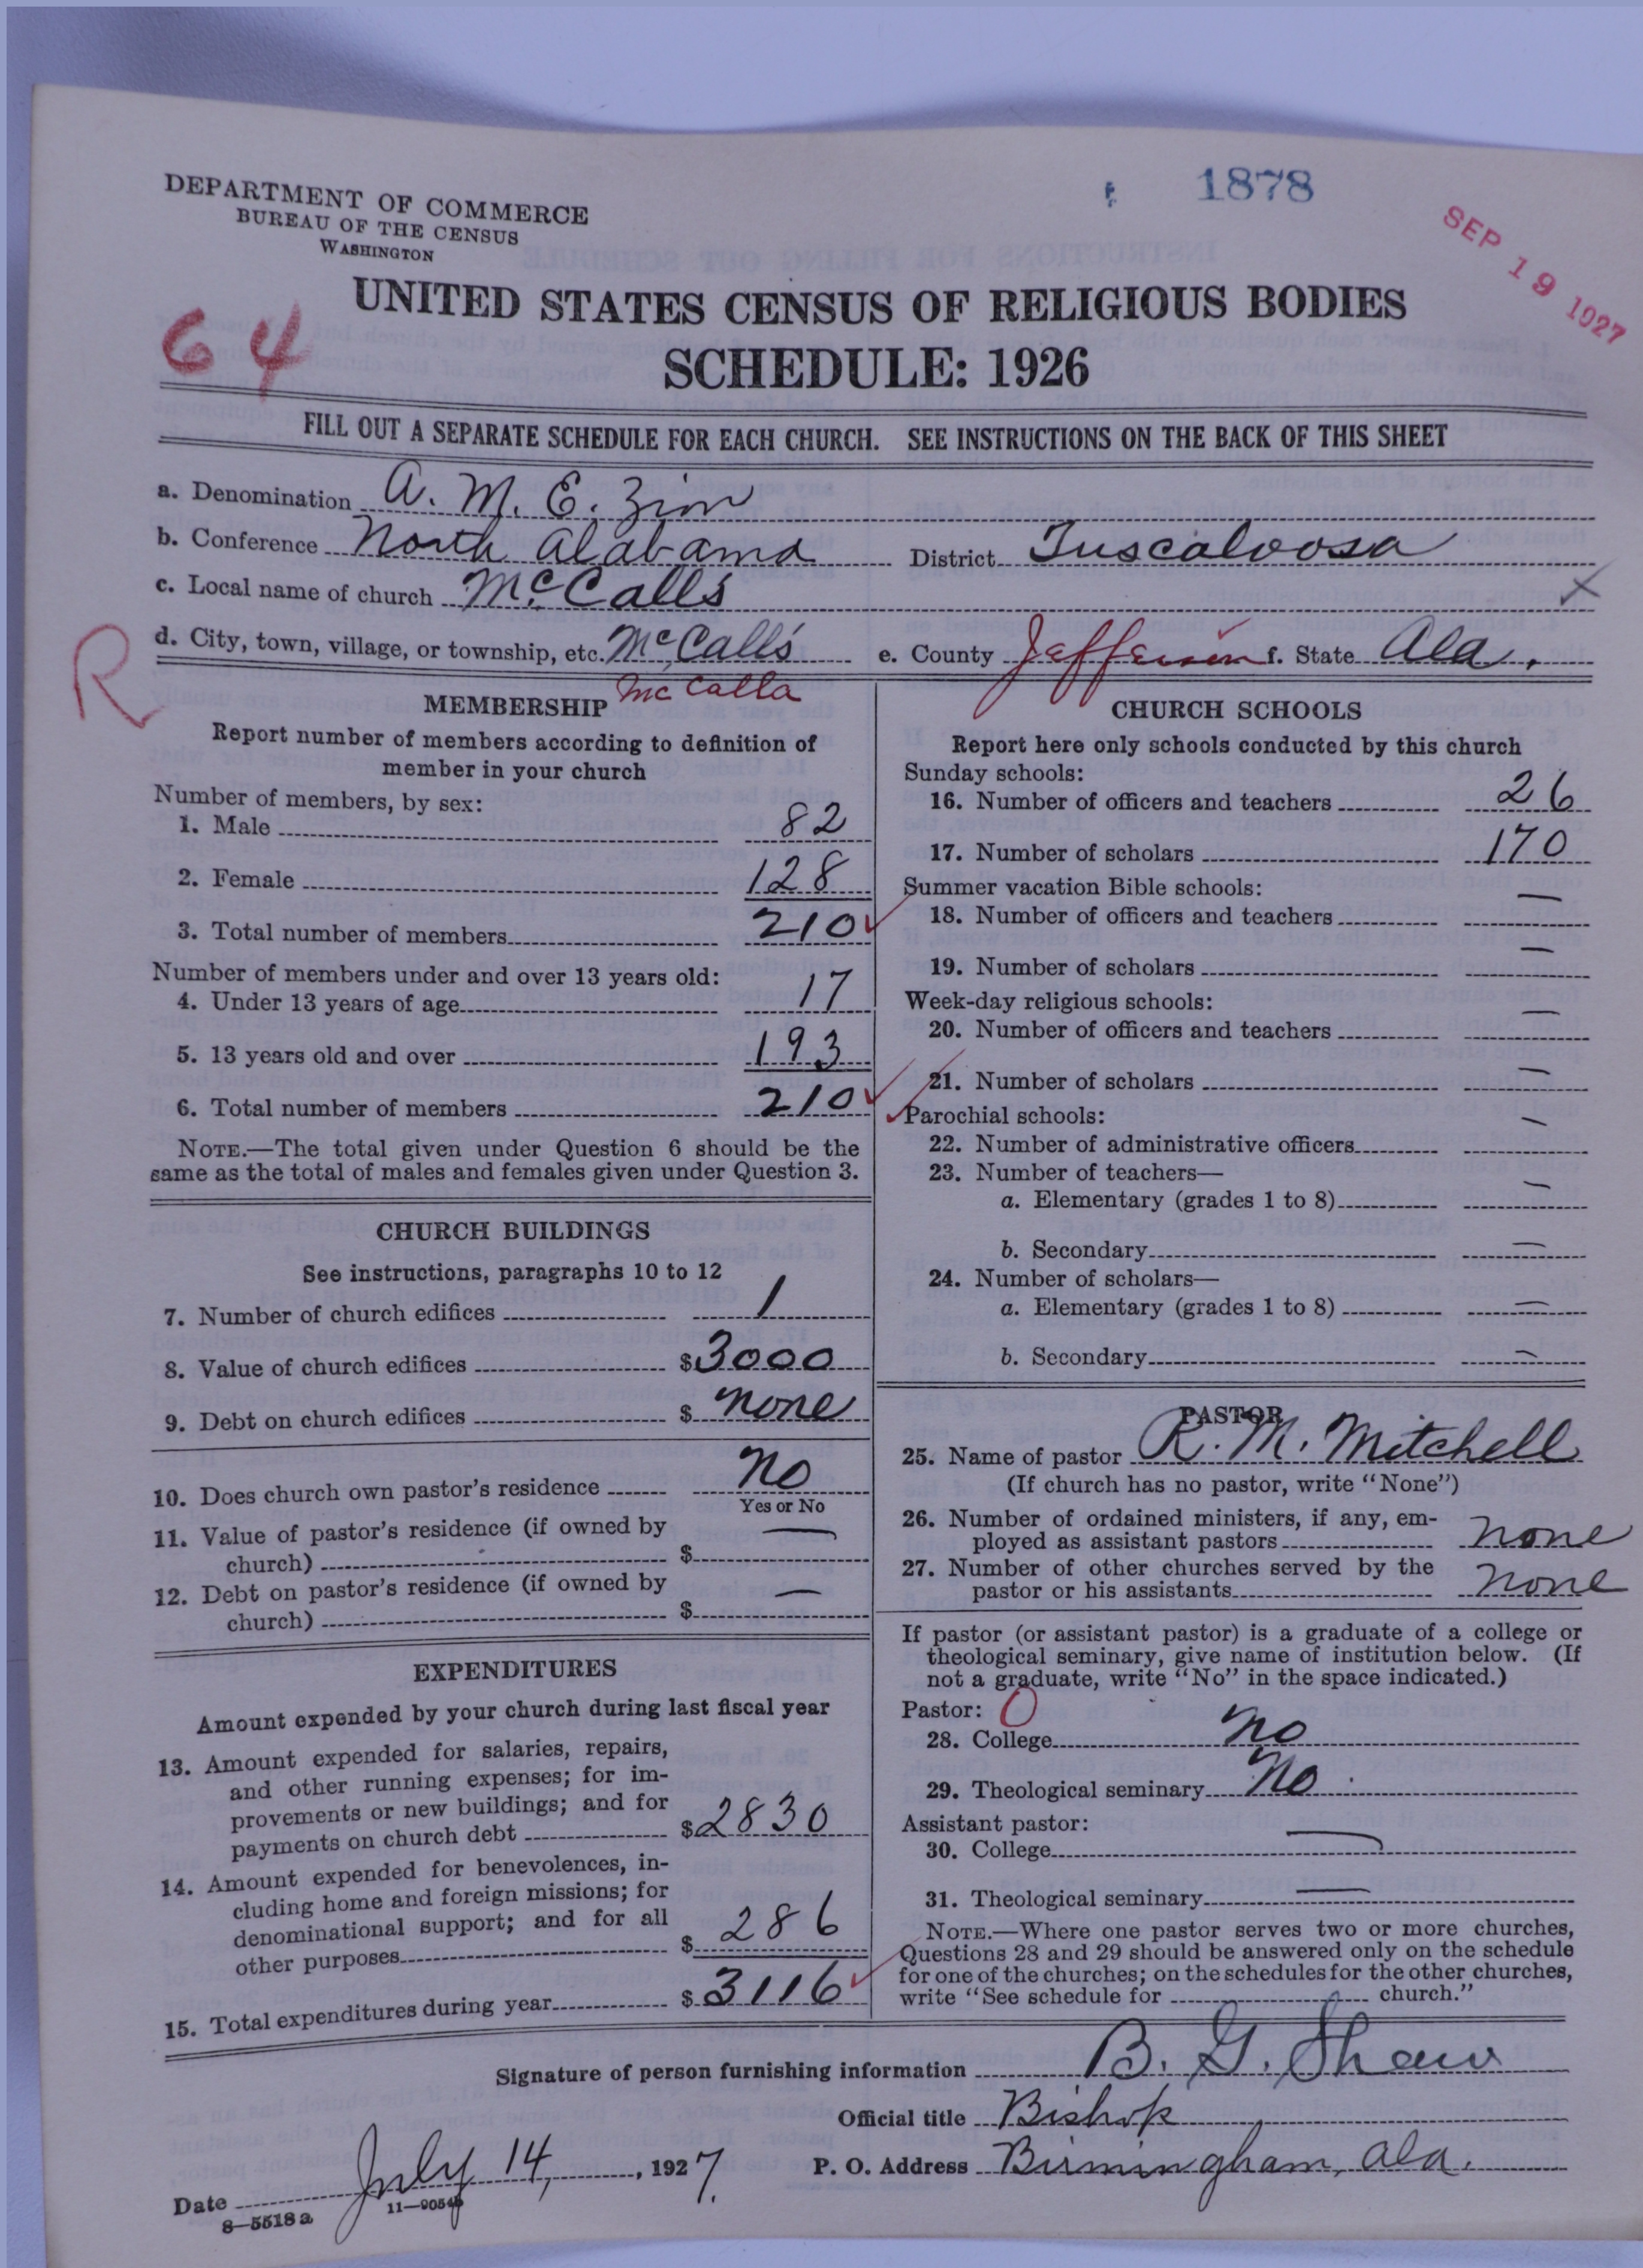 DEPARTMENT OF COMMERCE
BUREAU OF THE CENSUS
WASHINGTON
1878
SEP 19 1927
64
UNITED STATES CENSUS OF RELIGIOUS BODIES
SCHEDULE: 1926
FILL OUT A SEPARATE SCHEDULE FOR EACH CHURCH. SEE INSTRUCTIONS ON THE BACK OF THIS SHEET
a. Denomination A. M. E. Zion
b. Conference North Alabama District Tuscaloosa
c. Local name of church McCalls
d. City, town, village, or township, etc. McCalls e. County Jefferson f. State Ala.
R
McCalla
MEMBERSHIP
Report number of members according to definition of
member in your church
Number of members, by sex:
1. Male 82
2. Female 128
3. Total number of members 210
Number of members under and over 13 years old:
4. Under 13 years of age 17
5. 13 years old and over 193
6. Total number of members 210
NOTE.—The total given under Question 6 should be the
same as the total of males and females given under Question 3.
CHURCH BUILDINGS
See instructions, paragraphs 10 to 12
7. Number of church edifices 1
8. Value of church edifices $3000
9. Debt on church edifices $ none
10. Does church own pastor's residence no
Yes or No
11. Value of pastor's residence (if owned by
church) $ —
12. Debt on pastor's residence (if owned by
church) $ —
EXPENDITURES
Amount expended by your church during last fiscal year
13. Amount expended for salaries, repairs,
and other running expenses; for im-
provements or new buildings; and for
payments on church debt $2830
14. Amount expended for benevolences, in-
cluding home and foreign missions; for
denominational support; and for all
other purposes $ 286
15. Total expenditures during year $ 3116
CHURCH SCHOOLS
Report here only schools conducted by this church
Sunday schools:
16. Number of officers and teachers 26
17. Number of scholars 170
Summer vacation Bible schools:
18. Number of officers and teachers —
19. Number of scholars —
Week-day religious schools:
20. Number of officers and teachers —
21. Number of scholars —
Parochial schools:
22. Number of administrative officers —
23. Number of teachers—
a. Elementary (grades 1 to 8) —
b. Secondary —
24. Number of scholars—
a. Elementary (grades 1 to 8) —
b. Secondary —
PASTOR
25. Name of pastor R. M. Mitchell
(If church has no pastor, write "None")
26. Number of ordained ministers, if any, em-
ployed as assistant pastors none
27. Number of other churches served by the
pastor or his assistants none
If pastor (or assistant pastor) is a graduate of a college or
theological seminary, give name of institution below. (If
not a graduate, write "No" in the space indicated.)
Pastor: 0
28. College no
29. Theological seminary no
Assistant pastor:
30. College —
31. Theological seminary —
NOTE.—Where one pastor serves two or more churches,
Questions 28 and 29 should be answered only on the schedule
for one of the churches; on the schedules for the other churches,
write "See schedule for church."
Signature of person furnishing information B. G. Shaw
Official title Bishop
Date July 14, 1927. P. O. Address Birmingham, Ala.
8—5518 a 11—9054